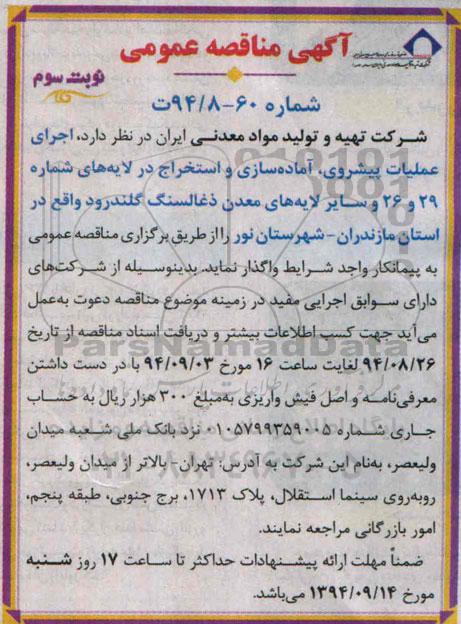 آگهی مناقصه عمومی
نوبت سوم
شماره ۶۰-۹۴/۸ت
شرکت تهیه و تولید مواد معدنی ایران در نظر دارد، اجرای
عملیات پیشروی، آماده‌سازی و استخراج در لایه‌های شماره
۲۹ و ۲۶ و سایر لایه‌های معدن ذغالسنگ گلندرود واقع در
استان مازندران - شهرستان نور را از طریق برگزاری مناقصه عمومی
به پیمانکار واجد شرایط واگذار نماید. بدینوسیله از شرکت‌های
دارای سوابق اجرایی مفید در زمینه موضوع مناقصه دعوت به‌عمل
می‌آید جهت کسب اطلاعات بیشتر و دریافت اسناد مناقصه از تاریخ
۹۴/۰۸/۲۶ لغایت ساعت ۱۶ مورخ ۹۴/۰۹/۰۳ با در دست داشتن
معرفی‌نامه و اصل فیش واریزی به‌مبلغ ۳۰۰ هزار ریال به حساب
جاری شماره ۰۱۰۵۷۹۹۳۵۹۰۰۵ نزد بانک ملی شعبه میدان
ولیعصر، به‌نام این شرکت به آدرس: تهران- بالاتر از میدان ولیعصر،
روبه‌روی سینما استقلال، پلاک ۱۷۱۳، برج جنوبی، طبقه پنجم،
امور بازرگانی مراجعه نمایند.
ضمناً مهلت ارائه پیشنهادات حداکثر تا ساعت ۱۷ روز شنبه
مورخ ۱۳۹۴/۰۹/۱۴ می‌باشد.
ParsNamadData